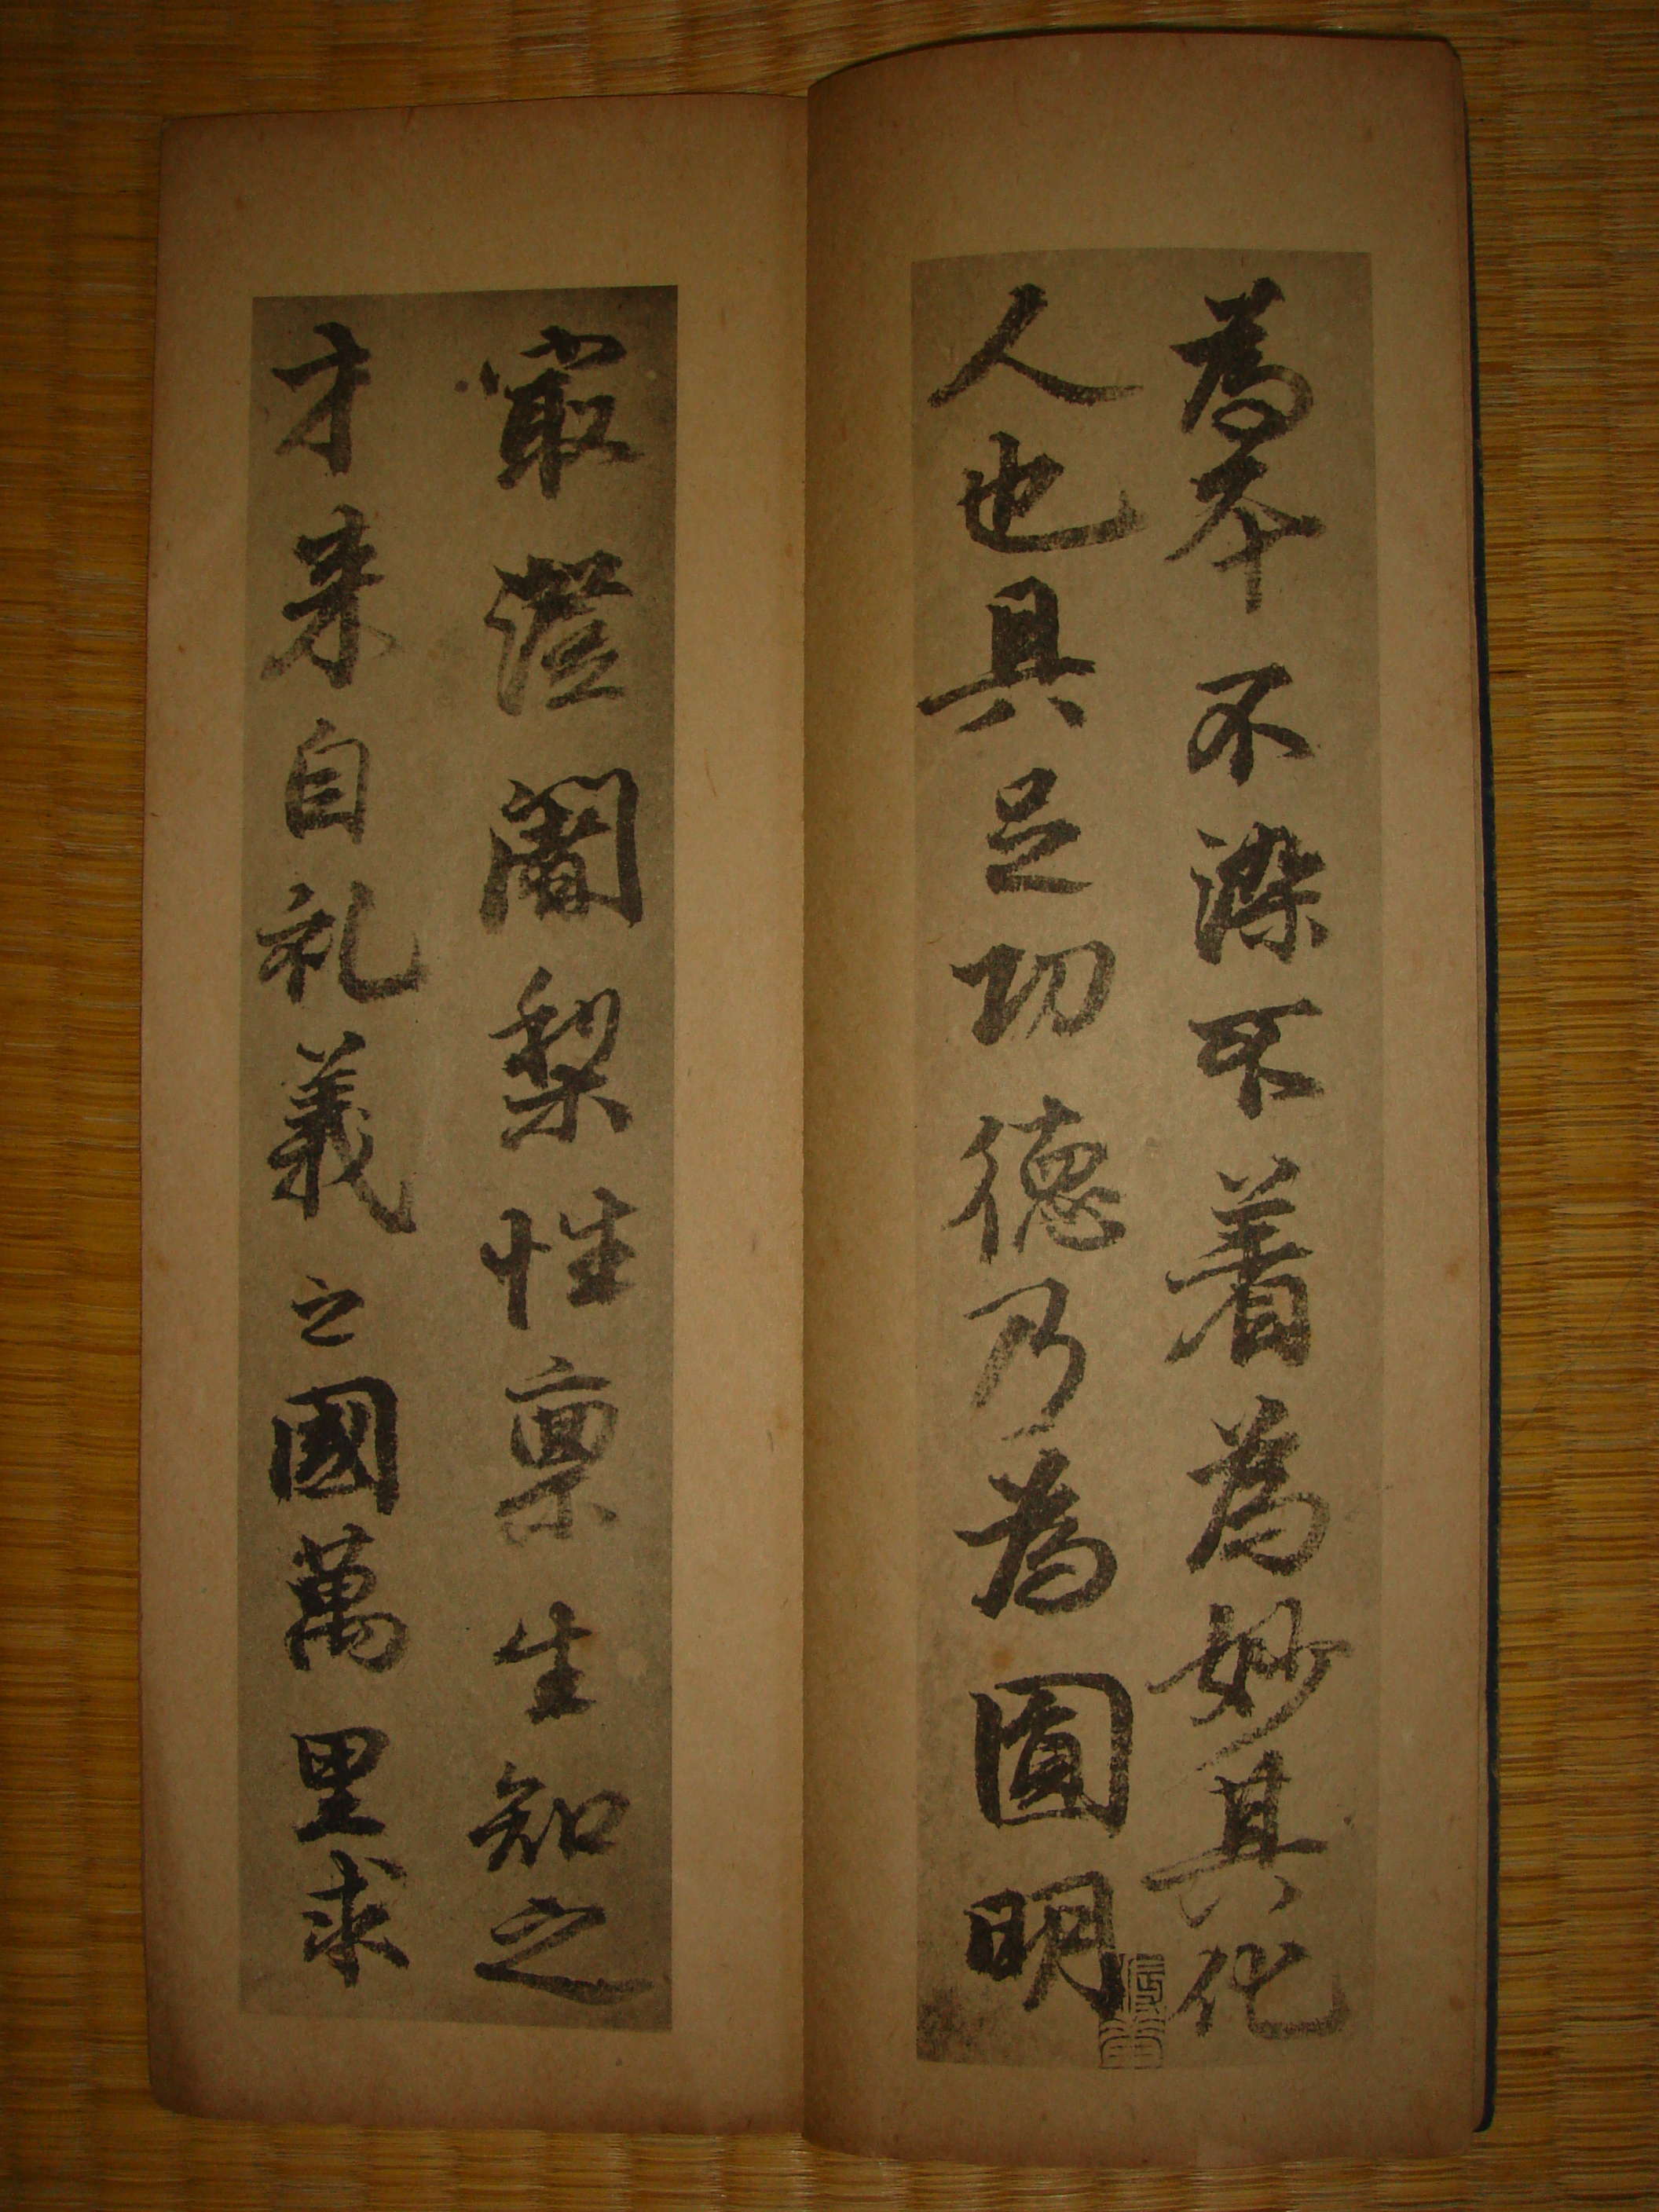 為本不染不著為妙其化
人也具足功德乃為圓明
寂澄闍梨性禀生知之
才来自礼義之國萬里求